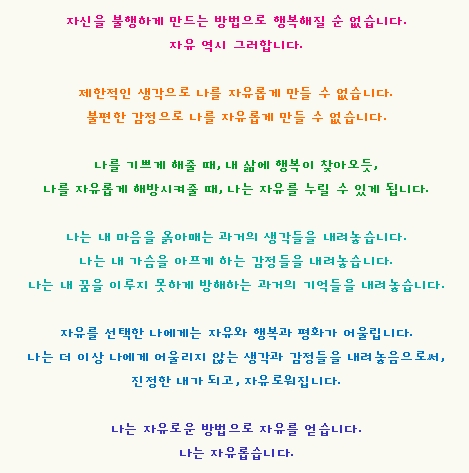 자신을 불행하게 만드는 방법으로 행복해질 순 없습니다.
자유 역시 그러합니다.
제한적인 생각으로 나를 자유롭게 만들 수 없습니다.
불편한 감정으로 나를 자유롭게 만들 수 없습니다.
나를 기쁘게 해줄 때, 내 삶에 행복이 찾아오듯,
나를 자유롭게 해방시켜줄 때, 나는 자유를 누릴 수 있게 됩니다.
나는 내 마음을 옭아매는 과거의 생각들을 내려놓습니다.
나는 내 가슴을 아프게 하는 감정들을 내려놓습니다.
나는 내 꿈을 이루지 못하게 방해하는 과거의 기억들을 내려놓습니다.
자유를 선택한 나에게는 자유와 행복과 평화가 어울립니다.
나는 더 이상 나에게 어울리지 않는 생각과 감정들을 내려놓음으로써,
진정한 내가 되고, 자유로워집니다.
나는 자유로운 방법으로 자유를 얻습니다.
나는 자유롭습니다.